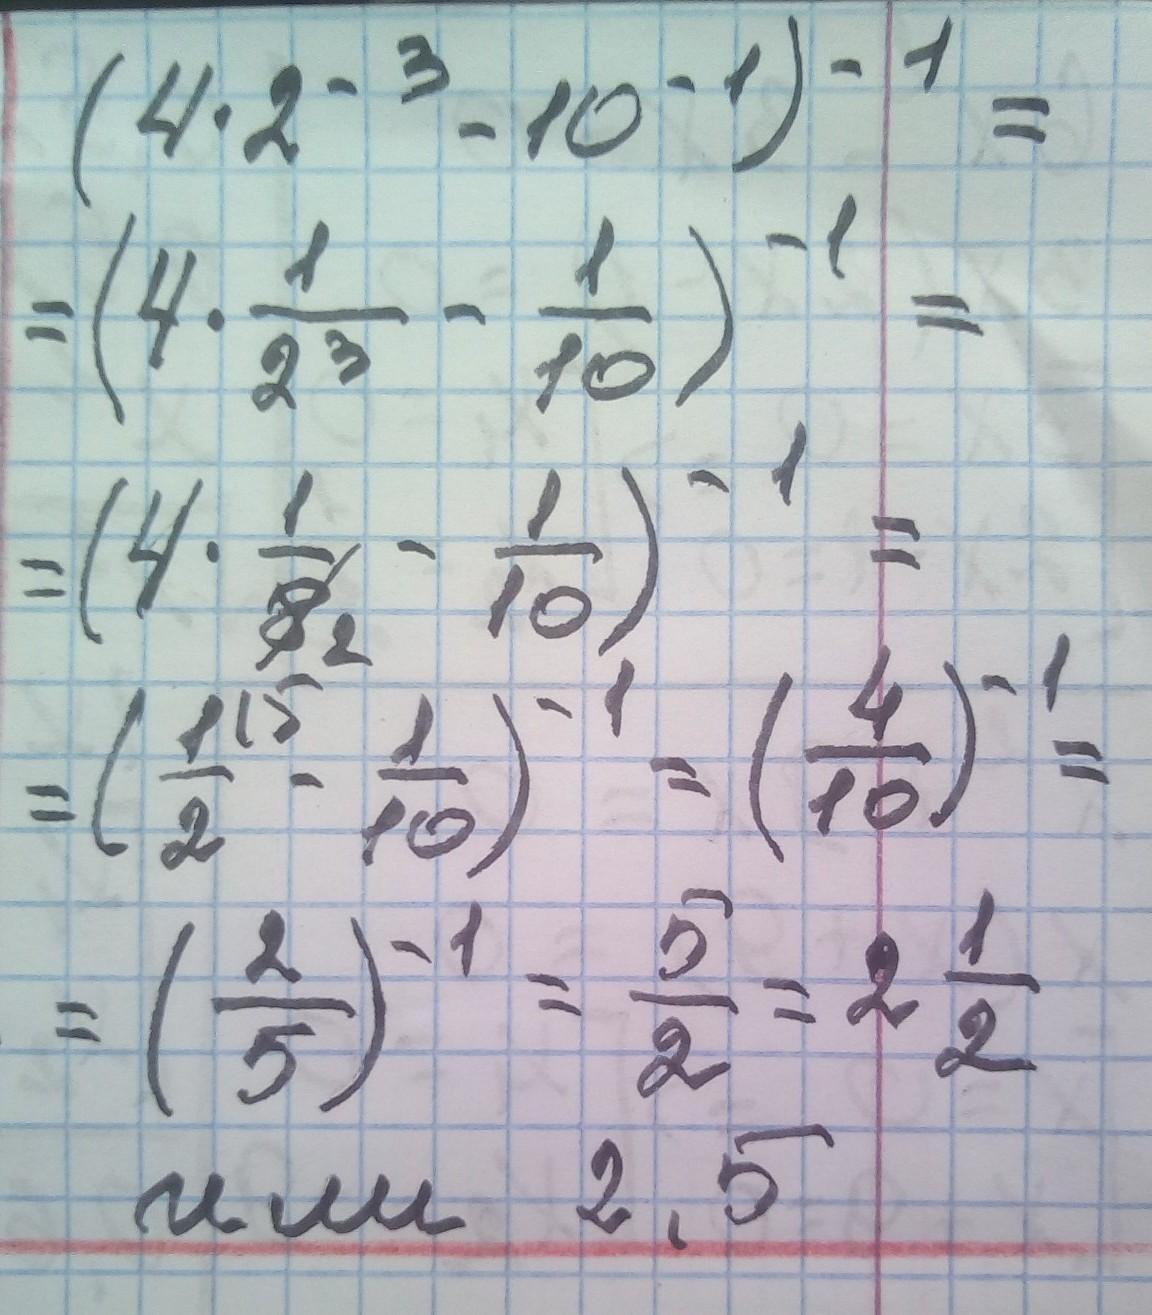 (4·2⁻³ - 10⁻¹)⁻¹ =
= (4·1/2³ - 1/10)⁻¹ =
= (4·1/8 2 - 1/10)⁻¹ =
= (1/2 ⁽⁵ - 1/10)⁻¹ = (4/10)⁻¹ =
= (2/5)⁻¹ = 5/2 = 2 1/2
или 2,5